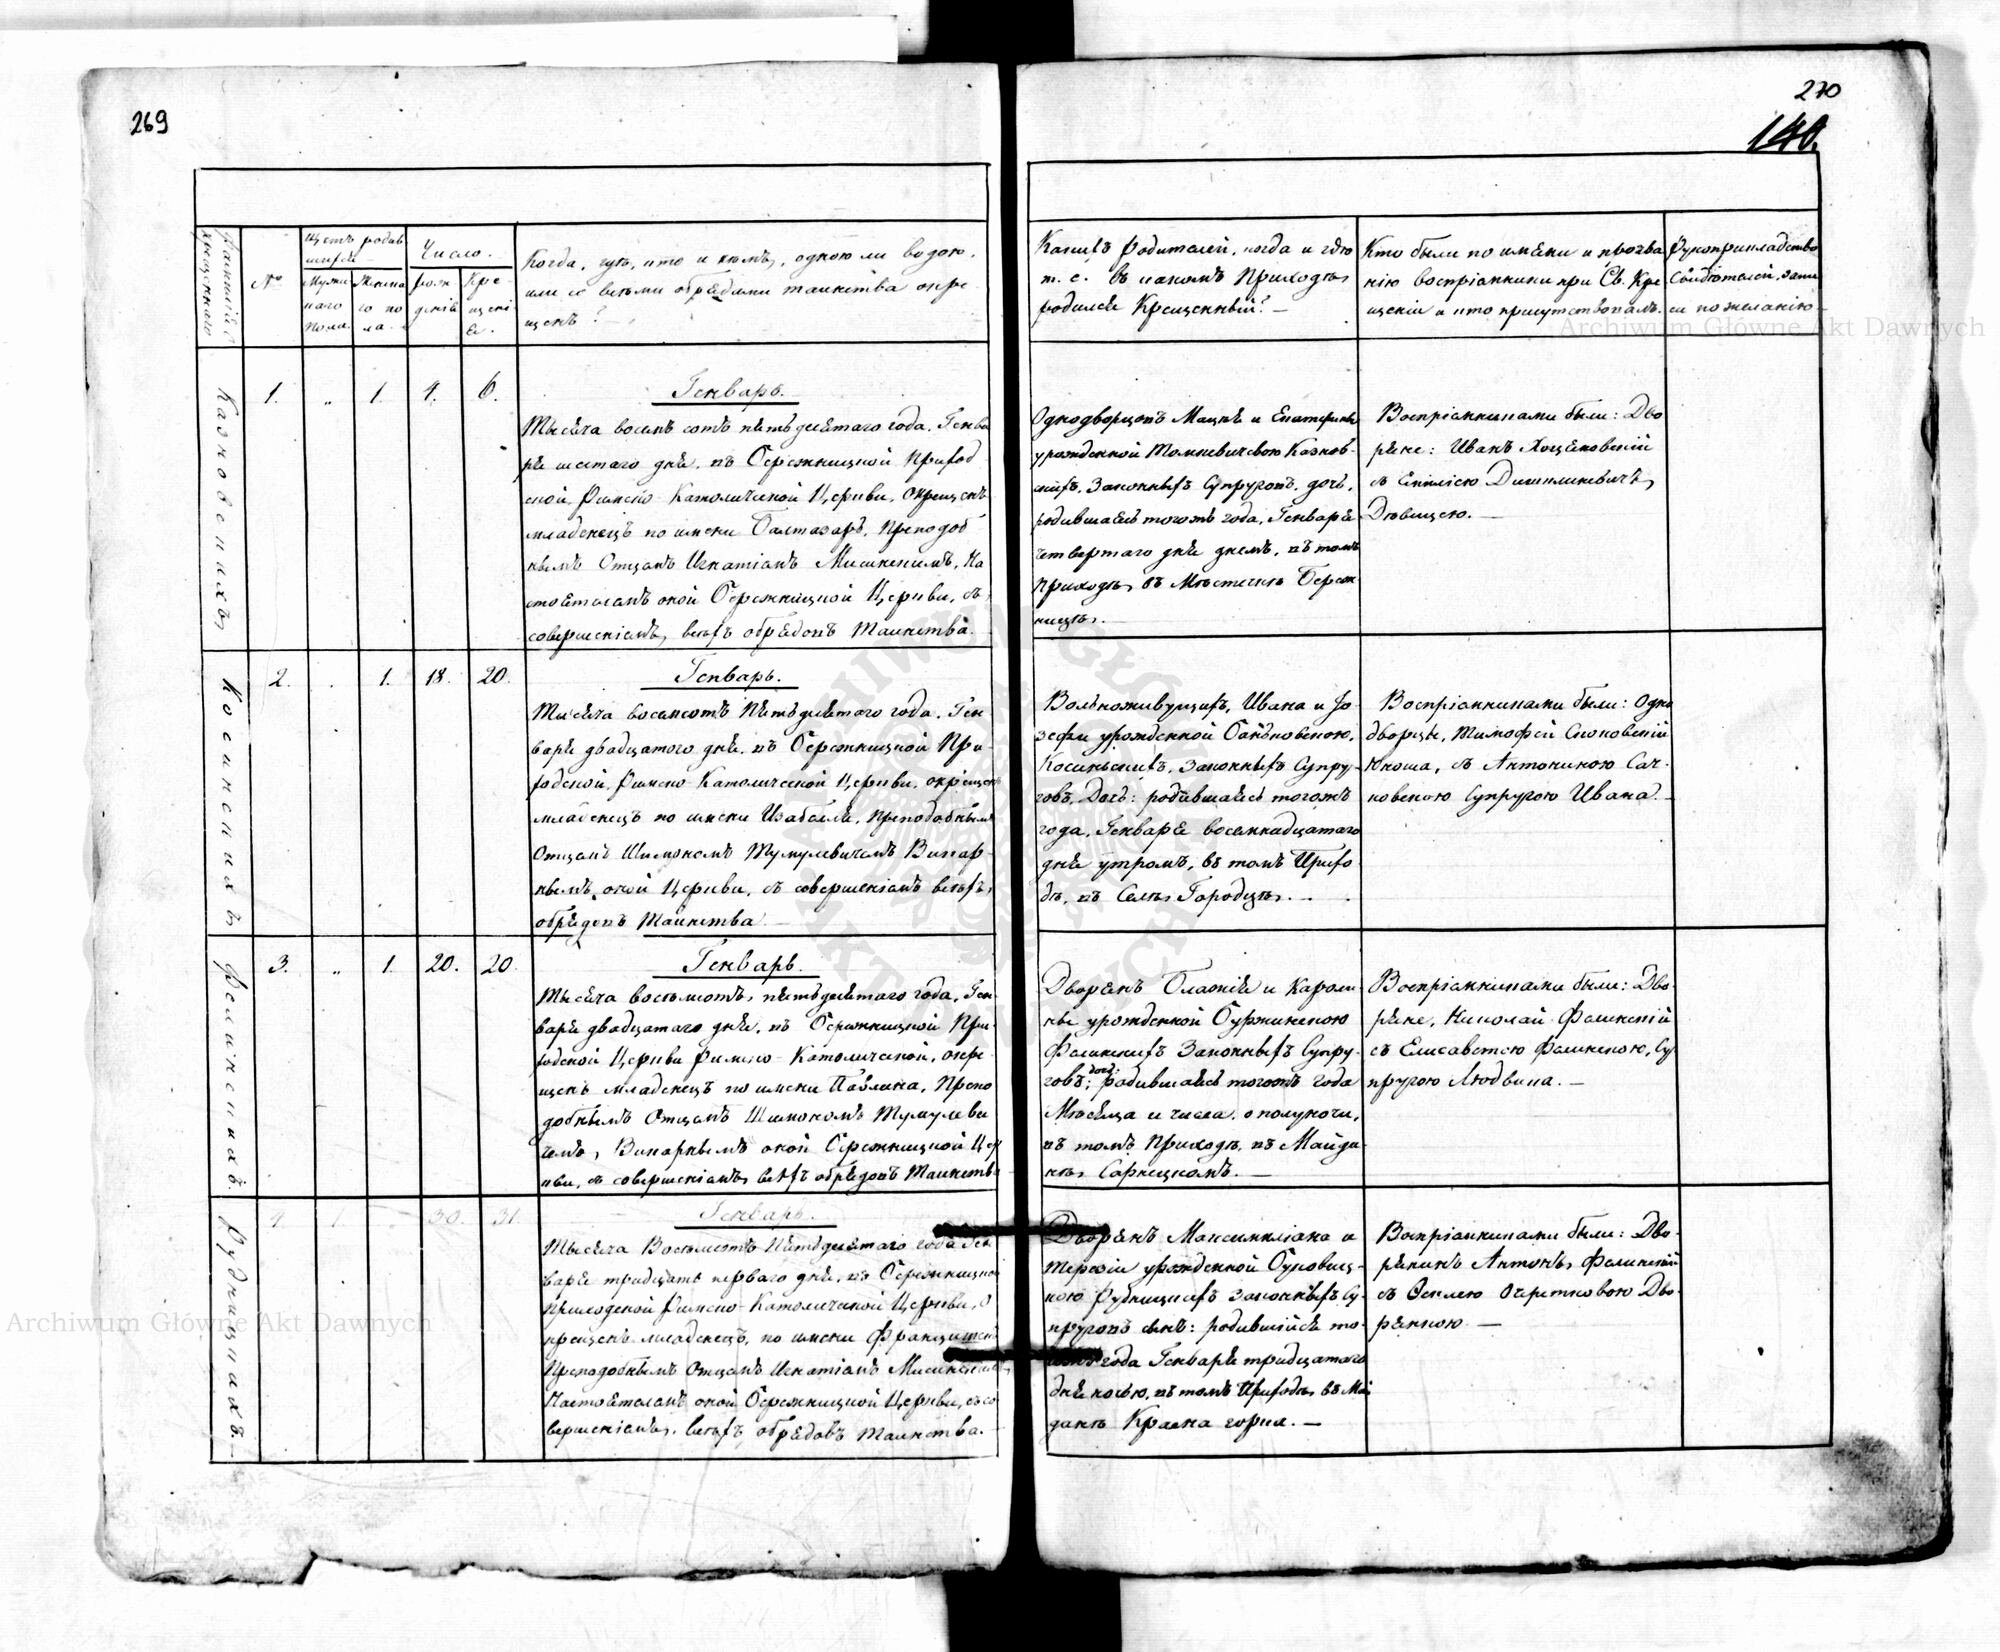 269
270
140.
Фамилiя
крещеннаго
№
Щетъ родив
шихся
Мужес
каго
пола.
Женска
го по
ла.
Число.
рож
денiя
Кре
щенi
я.
Когда, гдѣ, кто и кѣмъ, одною ли водою,
или со всѣми обрядами таинства окре-
щенъ? —
Какихъ родителей, когда и гдѣ
т. е. въ какомъ Приходѣ
родился Крещенный? —
Кто были по имени и прозва
нiю воспрiемники при Св. Кре
щенiи и кто присутствовалъ.
Рукоприкладство
Свидѣтелей, запи
си по желанiю
1.
„
1.
4.
6.
Генварь.
Тысяча восемъ сотъ пятьдесятаго года, Генва
ря шестаго дня, въ Бережницкой Приход
ской Римско-Католической Церкви, окрещенъ
младенецъ по имени Балтазаръ, Преподоб
нымъ Отцемъ Игнатiемъ Мисинскимъ, На
стоятелемъ оной Бережницкой Церкви, съ
совершенiемъ всѣхъ обрядовъ Таинства.
Однодворцовъ и Екатерины
урожденной Томкевичевою
законныхъ Супруговъ, дочь,
родившаяся тогожъ года, Генваря
четвертаго дня днемъ, въ томъ
Приходѣ, въ Мѣстечкѣ Береж
ницѣ.
Воспрiемниками были: Дво
ряне: Иванъ
съ
Дѣвицею. —
2.
1.
18.
20.
Генварь.
Тысяча восемсотъ Пятьдесятаго года, Ген
варя двадцатаго дня, въ Бережницкой При
ходской Римско-Католической Церкви, окрещенъ
младенецъ по имени Изабелла, Преподобнымъ
Отцемъ Шимономъ Тумулевичемъ Викар-
нымъ оной Церкви, съ совершенiемъ всѣхъ
обрядовъ Таинства. —
Вольноживущихъ, Ивана и Iо
зефы урожденной
Косинскихъ, Законныхъ Супру-
говъ, Дочь: родившаяся тогожъ
года, Генваря восемнадцатаго
дня утромъ, въ томъ Прихо
дѣ, въ Селѣ Городцѣ. —
Воспрiемниками были: Одно
дворцы, Тимофей
Юноша, съ Антониною Сач-
ковскою Супругою Ивана. —
3.
„
1.
20.
20.
Генварь.
Тысяча восемьсотъ пятьдесятаго года, Ген
варя двадцатаго дня, въ Бережницкой При-
ходской Церкви Римско-Католической, окре-
щенъ младенецъ по имени Павлина, Препо
добнымъ Отцемъ Шимономъ Тумулеви
чемъ, Викарнымъ оной Бережницкой Цер
кви, съ совершенiемъ всѣхъ обрядовъ Таинства
Дворянъ Блажея и Кароли
ны урожденной Буржинскою
Фелинскихъ Законныхъ Супру
говъ, дочь: родившаяся тогожъ года
Мѣсяца и числа, о полуночи,
въ томъ Приходѣ, въ Майда
нѣ Сарнецкомъ. —
Воспрiемниками были: Дво-
ряне, Николай Фелинскiй
съ Елисаветою Фелинскою, Су
пругою Людвика. —
4.
1.
30.
31.
Генварь.
Тысяча Восемьсотъ Пятьдесятаго года Ген
варя тридцать перваго дня, въ Бережницкой
Приходской Римско-Католической Церкви, о
крещенъ младенецъ, по имени Францишекъ
Преподобнымъ Отцемъ Игнатiемъ Мисинскимъ
Настоятелемъ оной Бережницкой Церкви, съ со
вершенiемъ всѣхъ обрядовъ Таинства.
Дворянъ Максимилiана и
Терезiи урожденной
Рудницкихъ Законныхъ Су-
пруговъ сынъ: родившiйся то-
гожъ года Генваря тридцатаго
дня ночью, въ томъ Приходѣ, въ Май
данѣ Красна горка. —
Воспрiемниками были: Дво-
рянинъ Антонъ Фелинскiй
съ Дво-
рянкою —
Косинскихъ
Фелинскихъ
Рудницкихъ
Archiwum Główne Akt Dawnych
Archiwum Główne Akt Dawnych